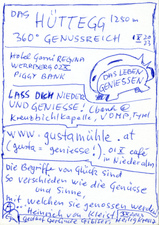 DAS HÜTTEGG 1280m
360° GENUSSREICH
Hotel Garni REGINA
PIGGY BANK
DAS LEBEN GENIESSEN
LASS DICH NIEDER
UND GENIESSE!
Kreuzbichlkapelle, VOMP, Tyrol
www.gustamühle.at
(gusta = geniesse!)
café in Niederalm
Die Begriffe von Glück sind
so verschieden wie die Genüsse
und Sinne,
mit welchen sie genossen werden
Heinrich von Kleist